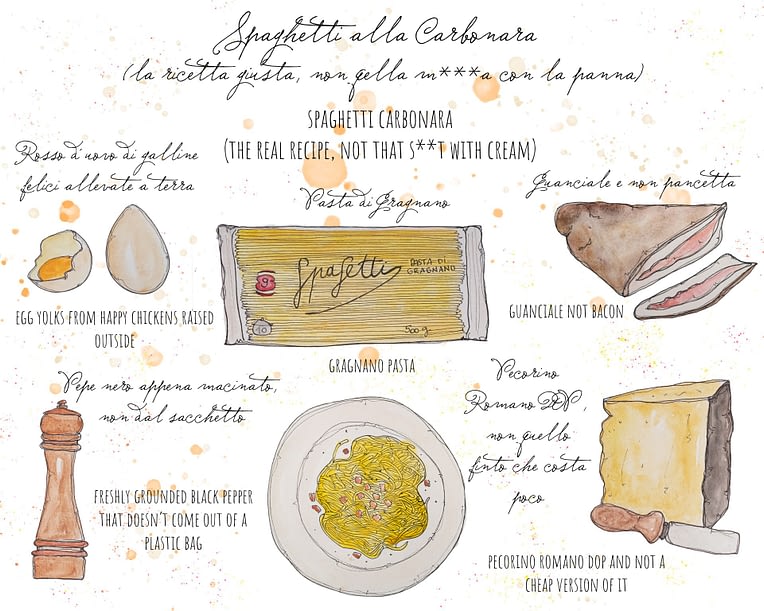 Spaghetti alla Carbonara
(la ricetta giusta, non qella m***a con la panna)
SPAGHETTI CARBONARA
(THE REAL RECIPE, NOT THAT S**T WITH CREAM)
Rosso d'uovo di galline
felici allevate a terra
EGG YOLKS FROM HAPPY CHICKENS RAISED
OUTSIDE
Pasta di Gragnano
Spagetti
PASTA DI
GRAGNANO
9
10
500 g
GRAGNANO PASTA
Guanciale e non pancetta
GUANCIALE NOT BACON
Pepe nero appena macinato,
non dal sacchetto
FRESHLY GROUNDED BLACK PEPPER
THAT DOESN'T COME OUT OF A
PLASTIC BAG
Pecorino
Romano DOP,
non quello
finto che costa
poco
PECORINO ROMANO DOP AND NOT A
CHEAP VERSION OF IT